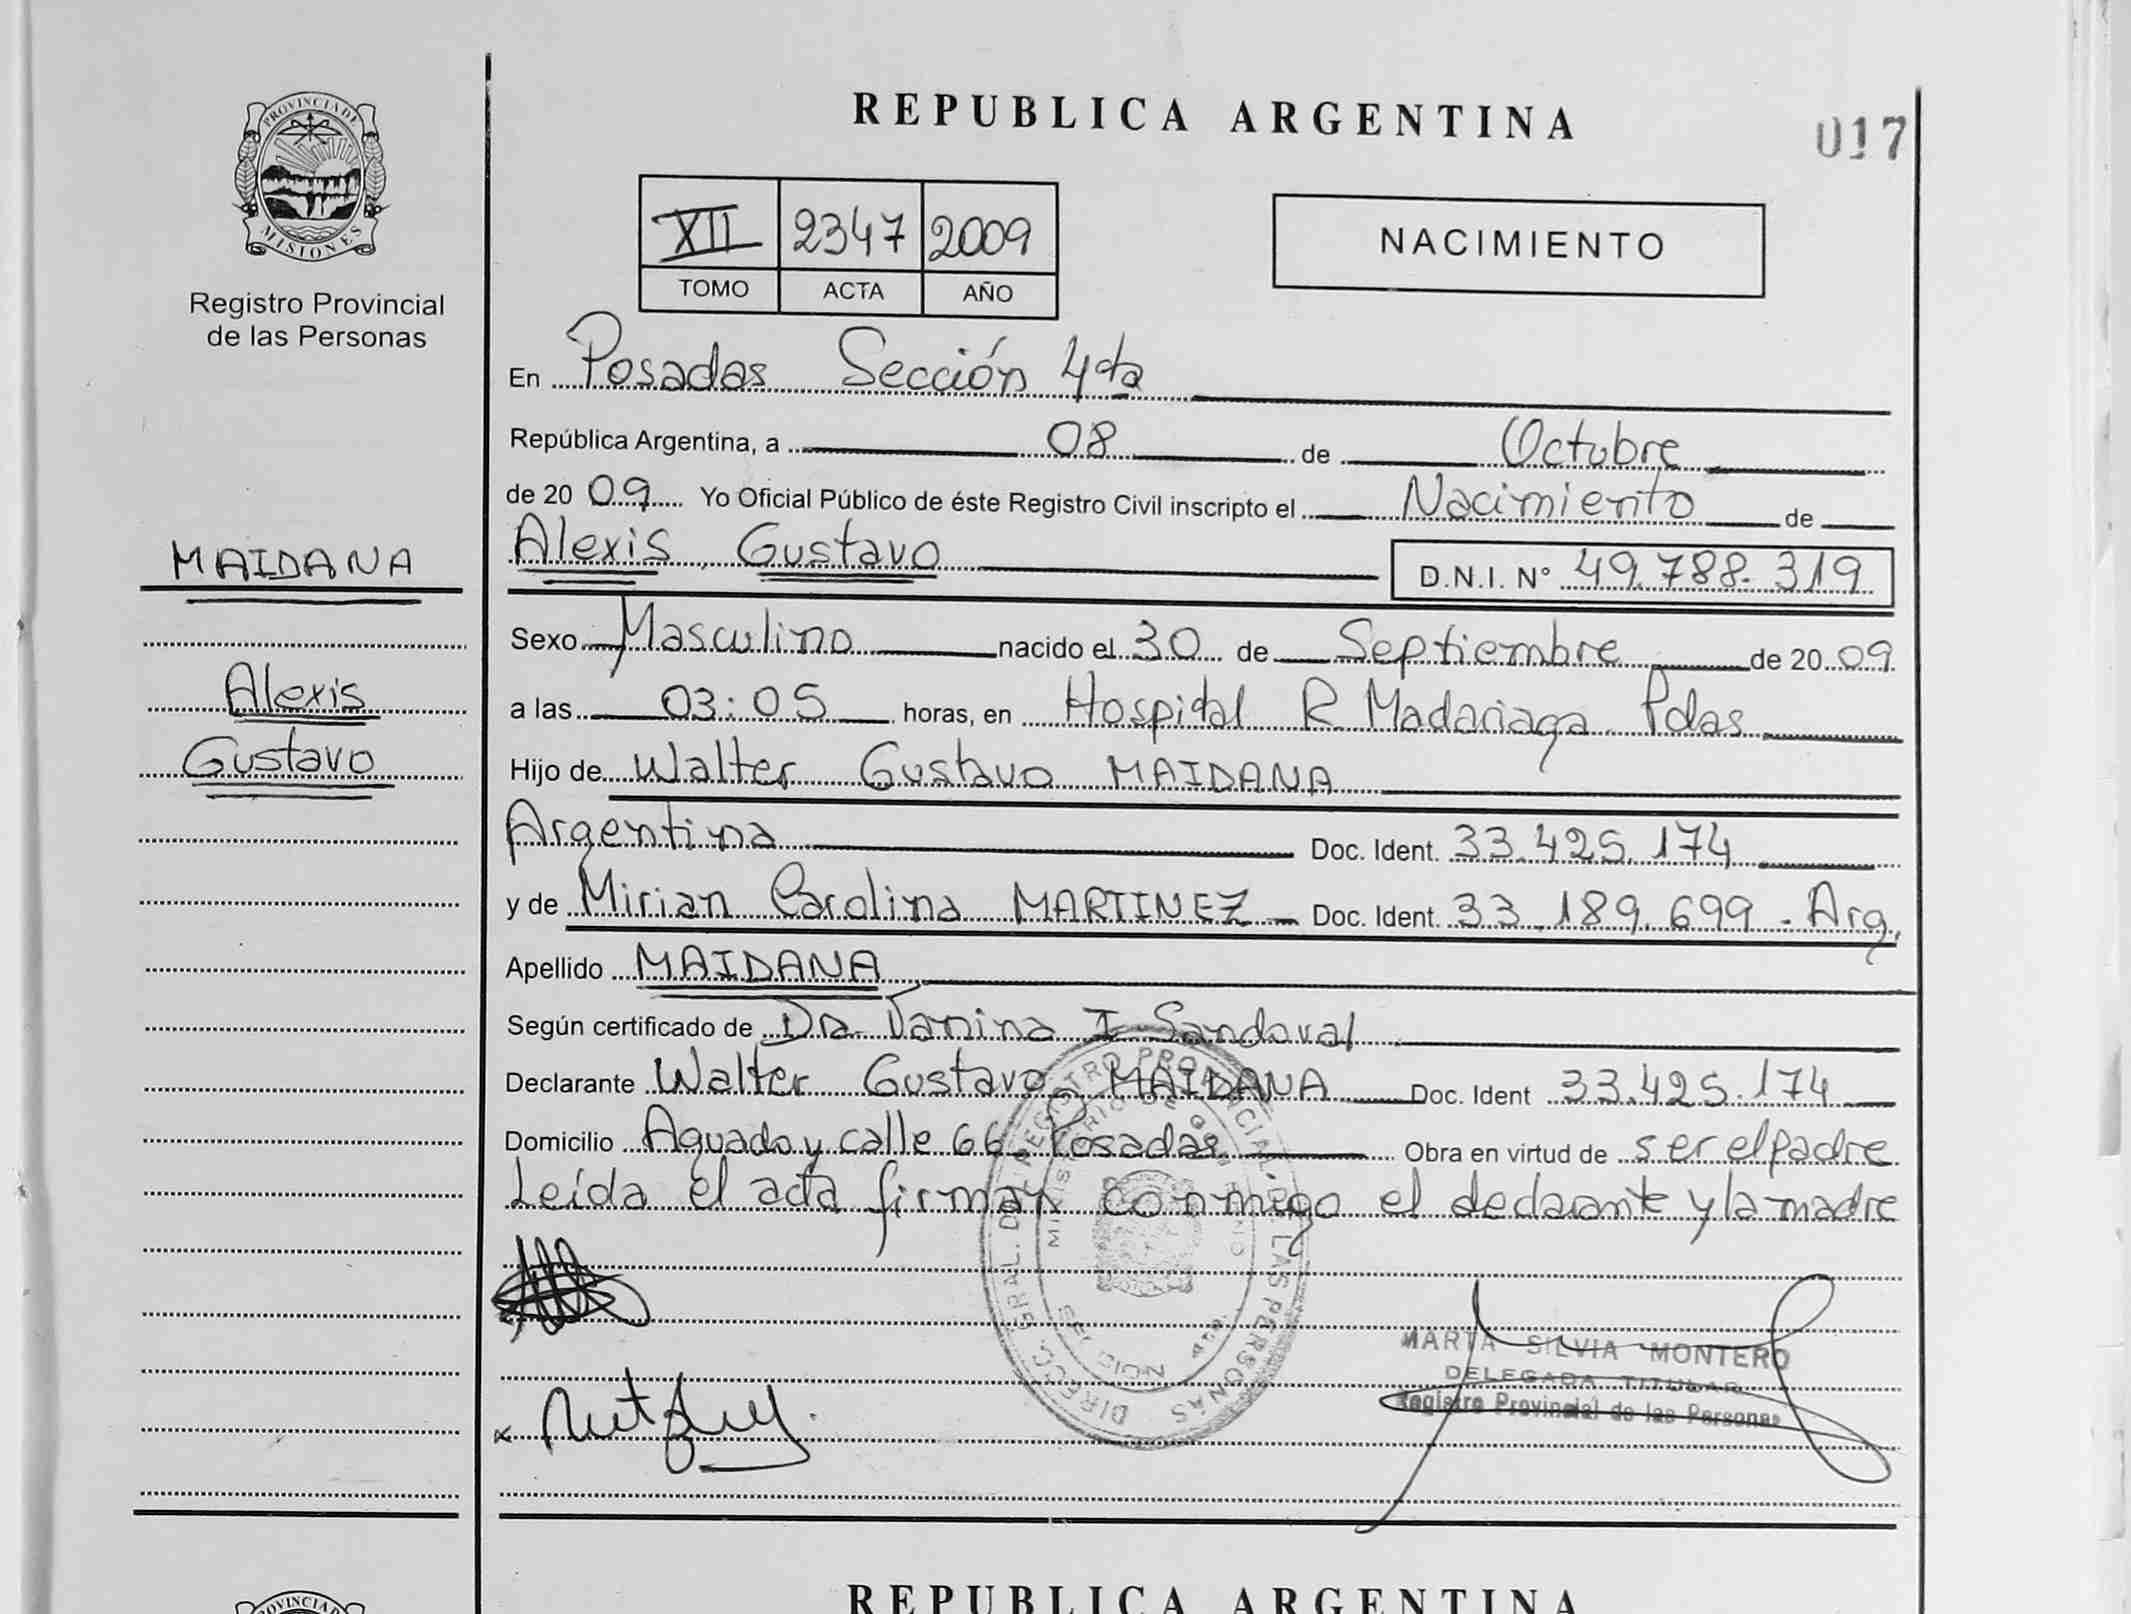 REPUBLICA ARGENTINA
017
PROVINCIA DE
MISIONES
Registro Provincial
de las Personas
XII 2347 2009
TOMO ACTA AÑO
NACIMIENTO
En Posadas Sección 4ta
República Argentina, a 08 de Octubre
de 20 09 Yo Oficial Público de éste Registro Civil inscripto el Nacimiento de
Alexis Gustavo D.N.I. N° 49.788.319
MAIDANA
Alexis
Gustavo
Sexo Masculino nacido el 30 de Septiembre de 20 09
a las 03:05 horas, en Hospital R Madariaga Pdas
Hijo de Walter Gustavo MAIDANA
Argentina Doc. Ident. 33.425.174
y de Mirian Carolina MARTINEZ Doc. Ident. 33.189.699 - Arg.
Apellido MAIDANA
Según certificado de Dra. Vanina I Sandoval
Declarante Walter Gustavo MAIDANA Doc. Ident 33.425.174
Domicilio Aguado y calle 66 Posadas Obra en virtud de ser el padre
Leída el acta firman conmigo el declarante y la madre
DIRECC. GRAL. DEL REGISTRO PROVINCIAL DE LAS PERSONAS
MARTA SILVIA MONTERO
DELEGADA TITULAR
Registro Provincial de las Personas
REPUBLICA ARGENTINA